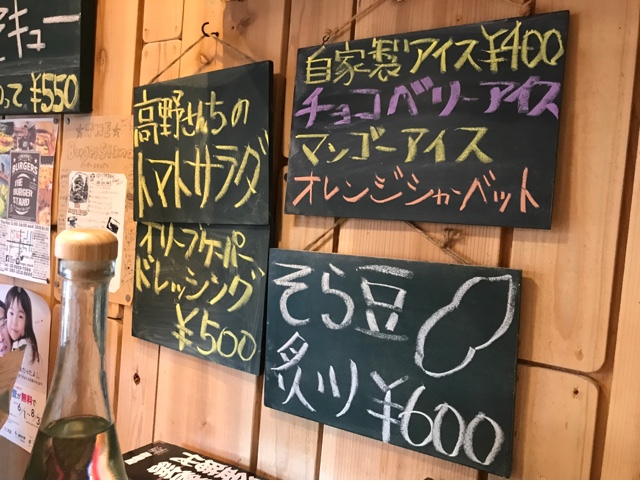 キュー
って、¥550
高野さんちの
トマトサラダ
オリーブケーパー
ドレッシング
¥500
自家製アイス¥400
チョコベリーアイス
マンゴーアイス
オレンジシャーベット
そら豆
炙り ¥600
BURGERS
THE
BURGER
STAND